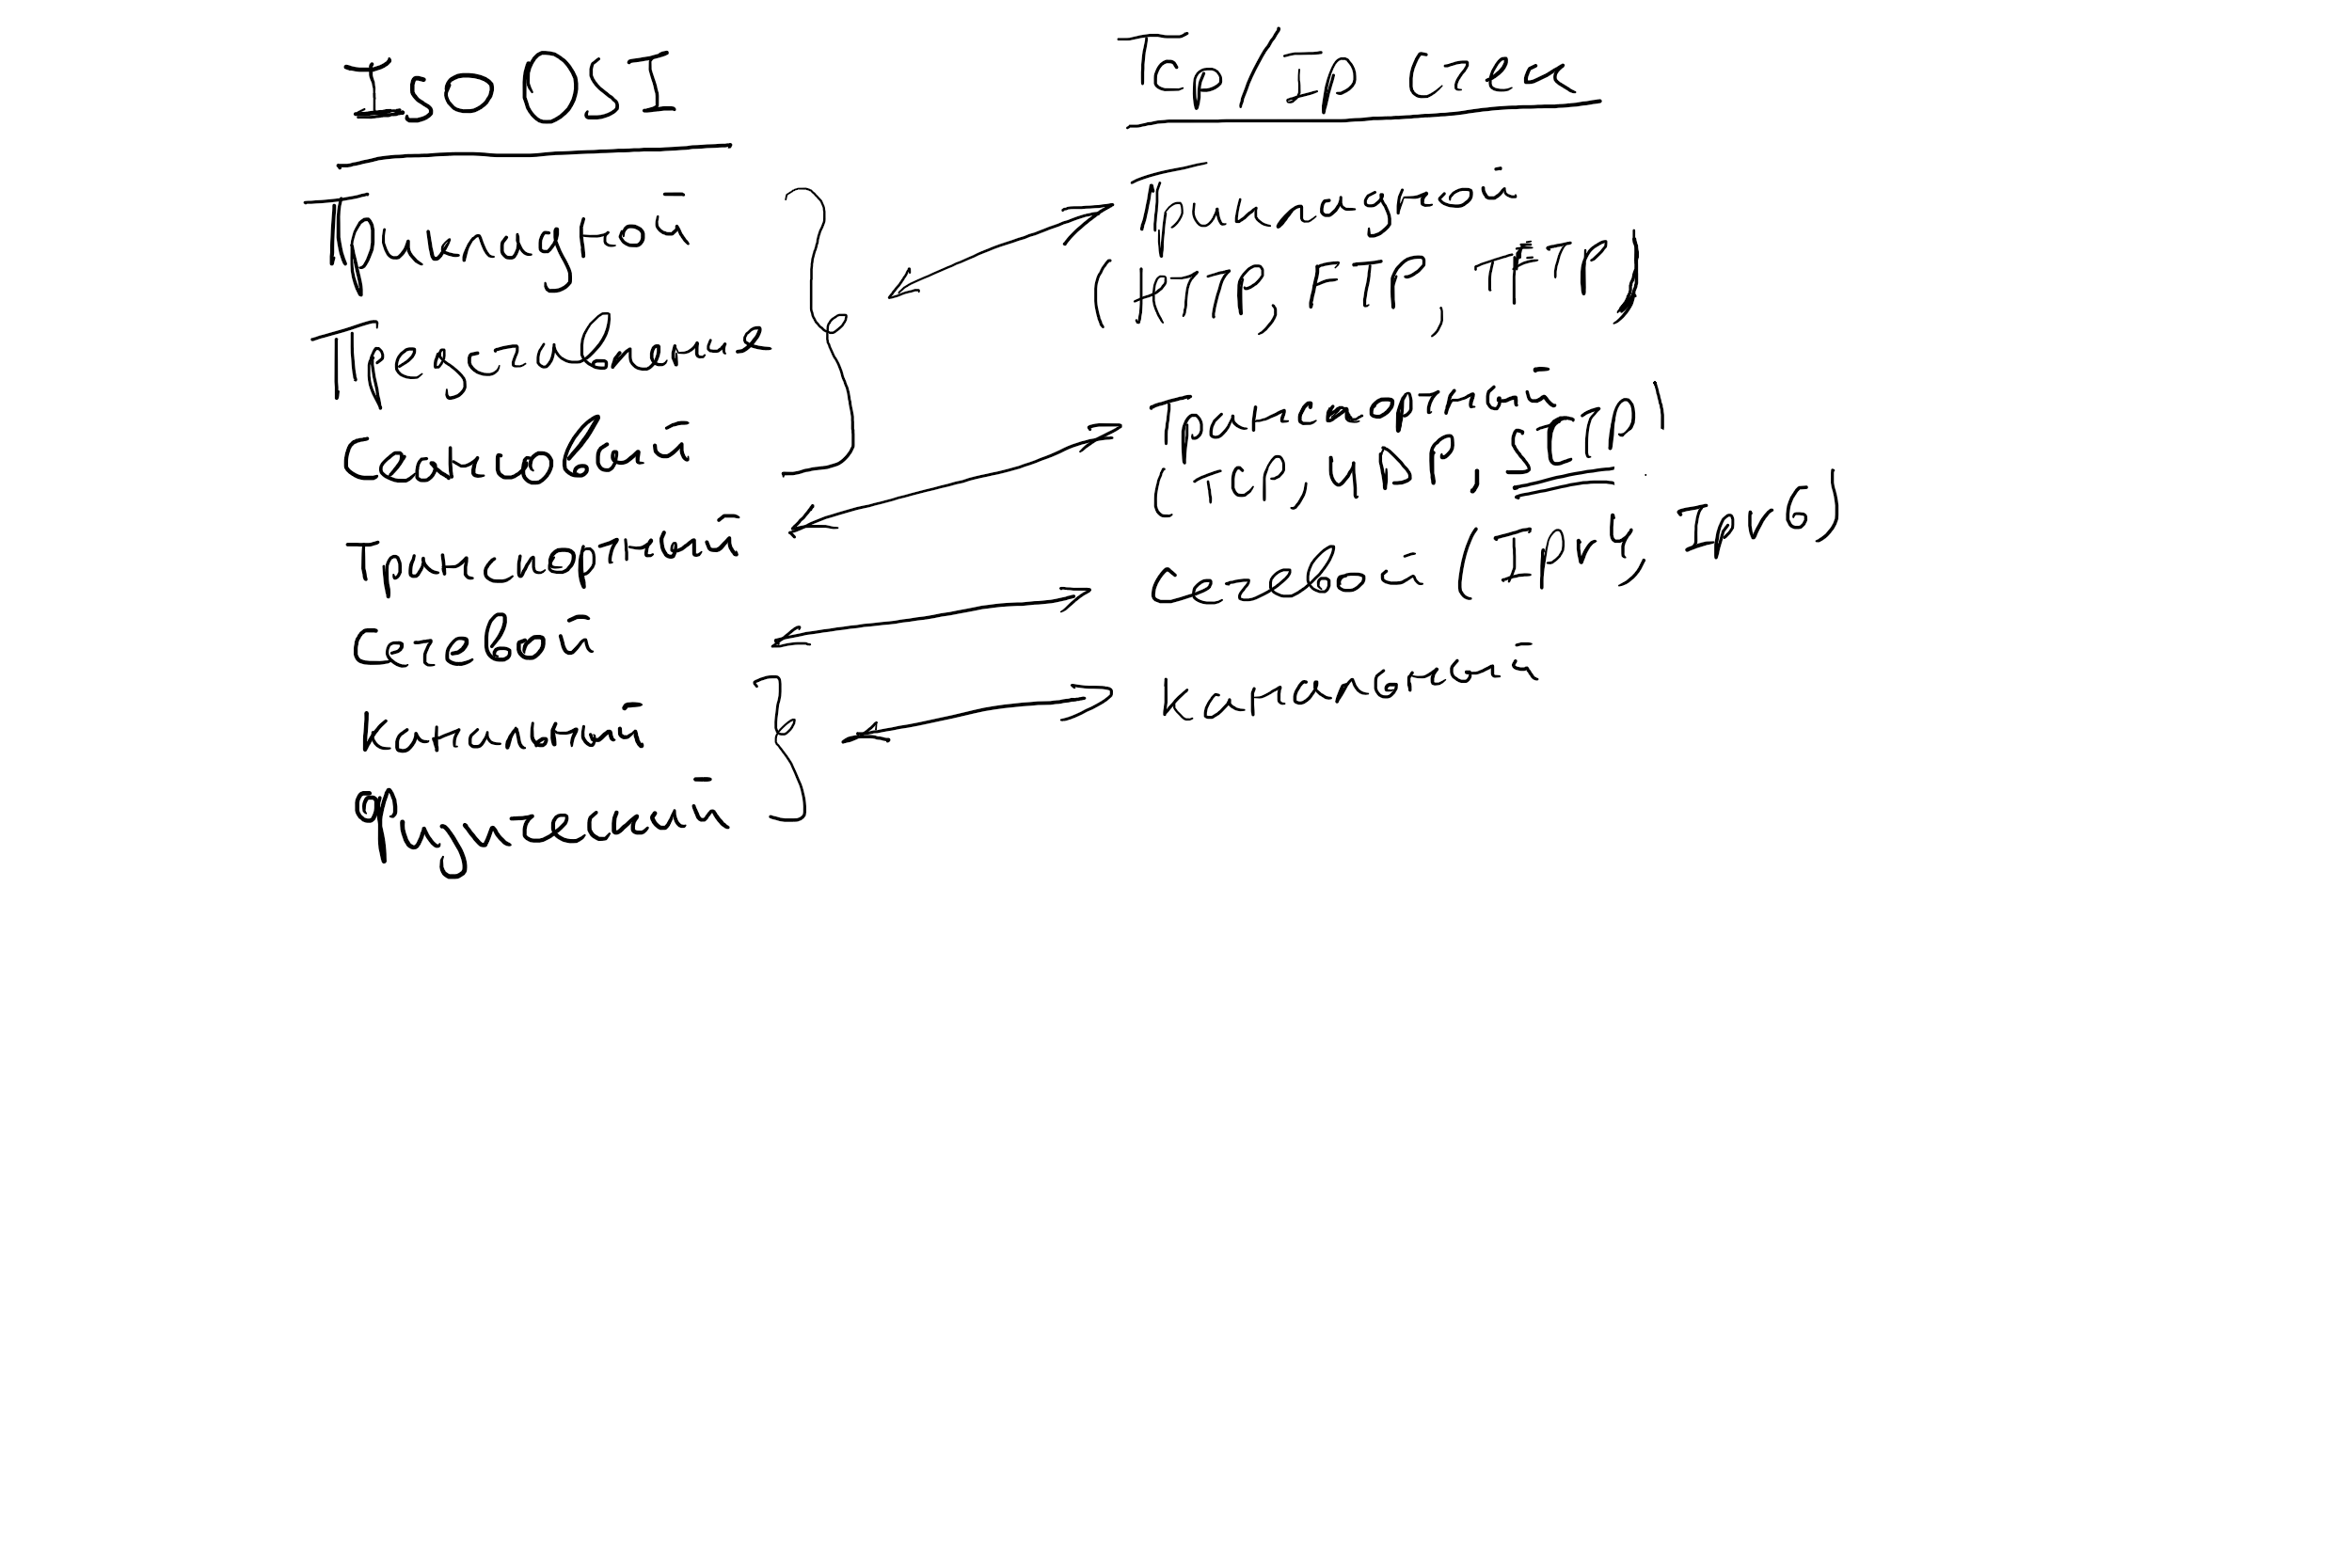 Iso OSI
Прикладной
Представление
Сеансовый
Транспортный
Сетевой
Канальный
Физический
Tcp/Ip Стек
Прикладной
(HTTP, FTP, TFTP)
Транспортный
(TCP, UDP, SCTP)
Сетевой (Ipv4, Ipv6)
Канальный